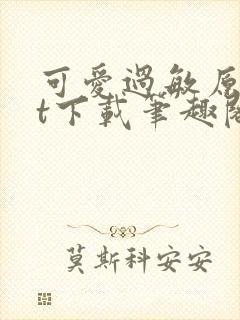 可愛過敏原
t下載筆趣閣
莫斯科安安